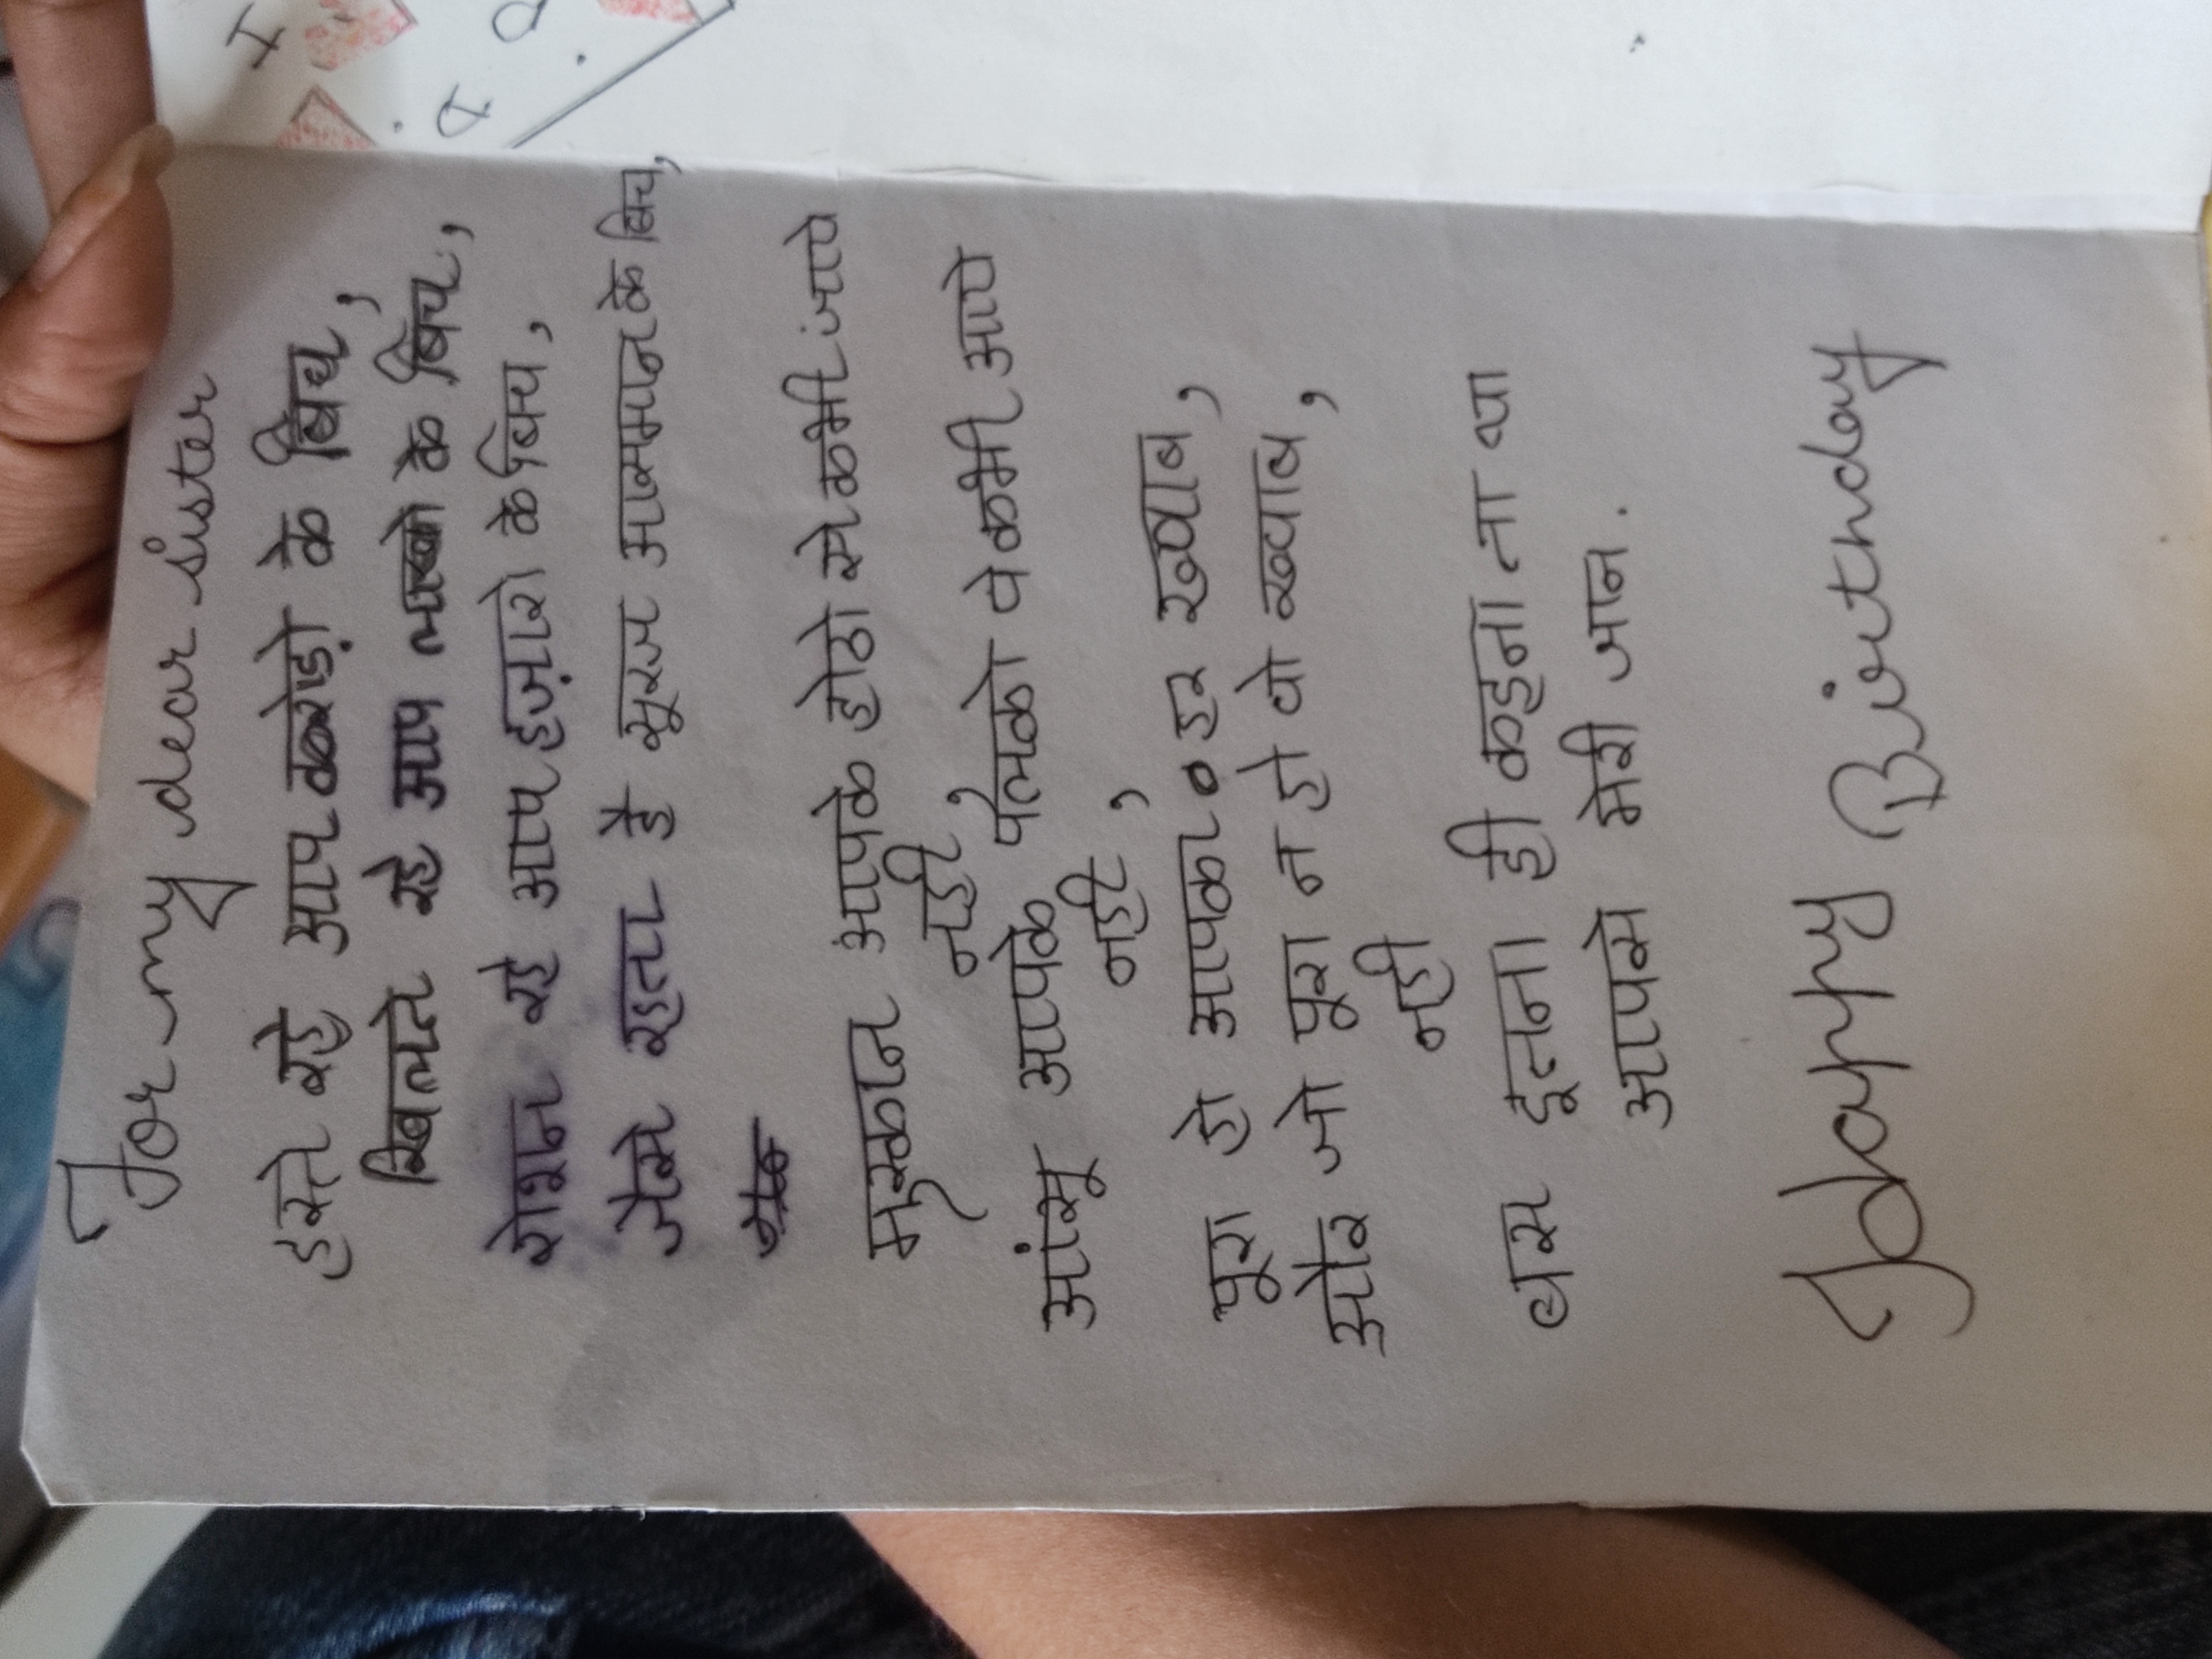 For my dear sister
हस्ते रहे आप करोड़ो के बिच,
खिलते रहे आप लाखो के बिच,
रोशन रहे आप हज़ारो के बिच,
जैसे रहता है सूरज आसमान के बिच,
मुस्कान आपके होठो से कभी जाये
नही,
आंसू आपके पलको पे कभी आये
नही,
पूरा हो आपका हर ख्वाब,
और जो पूरा न हो वो ख्वाब,
नही
बस इतना ही कहना ता था
आपसे मेरी जान.
Happy Birthday